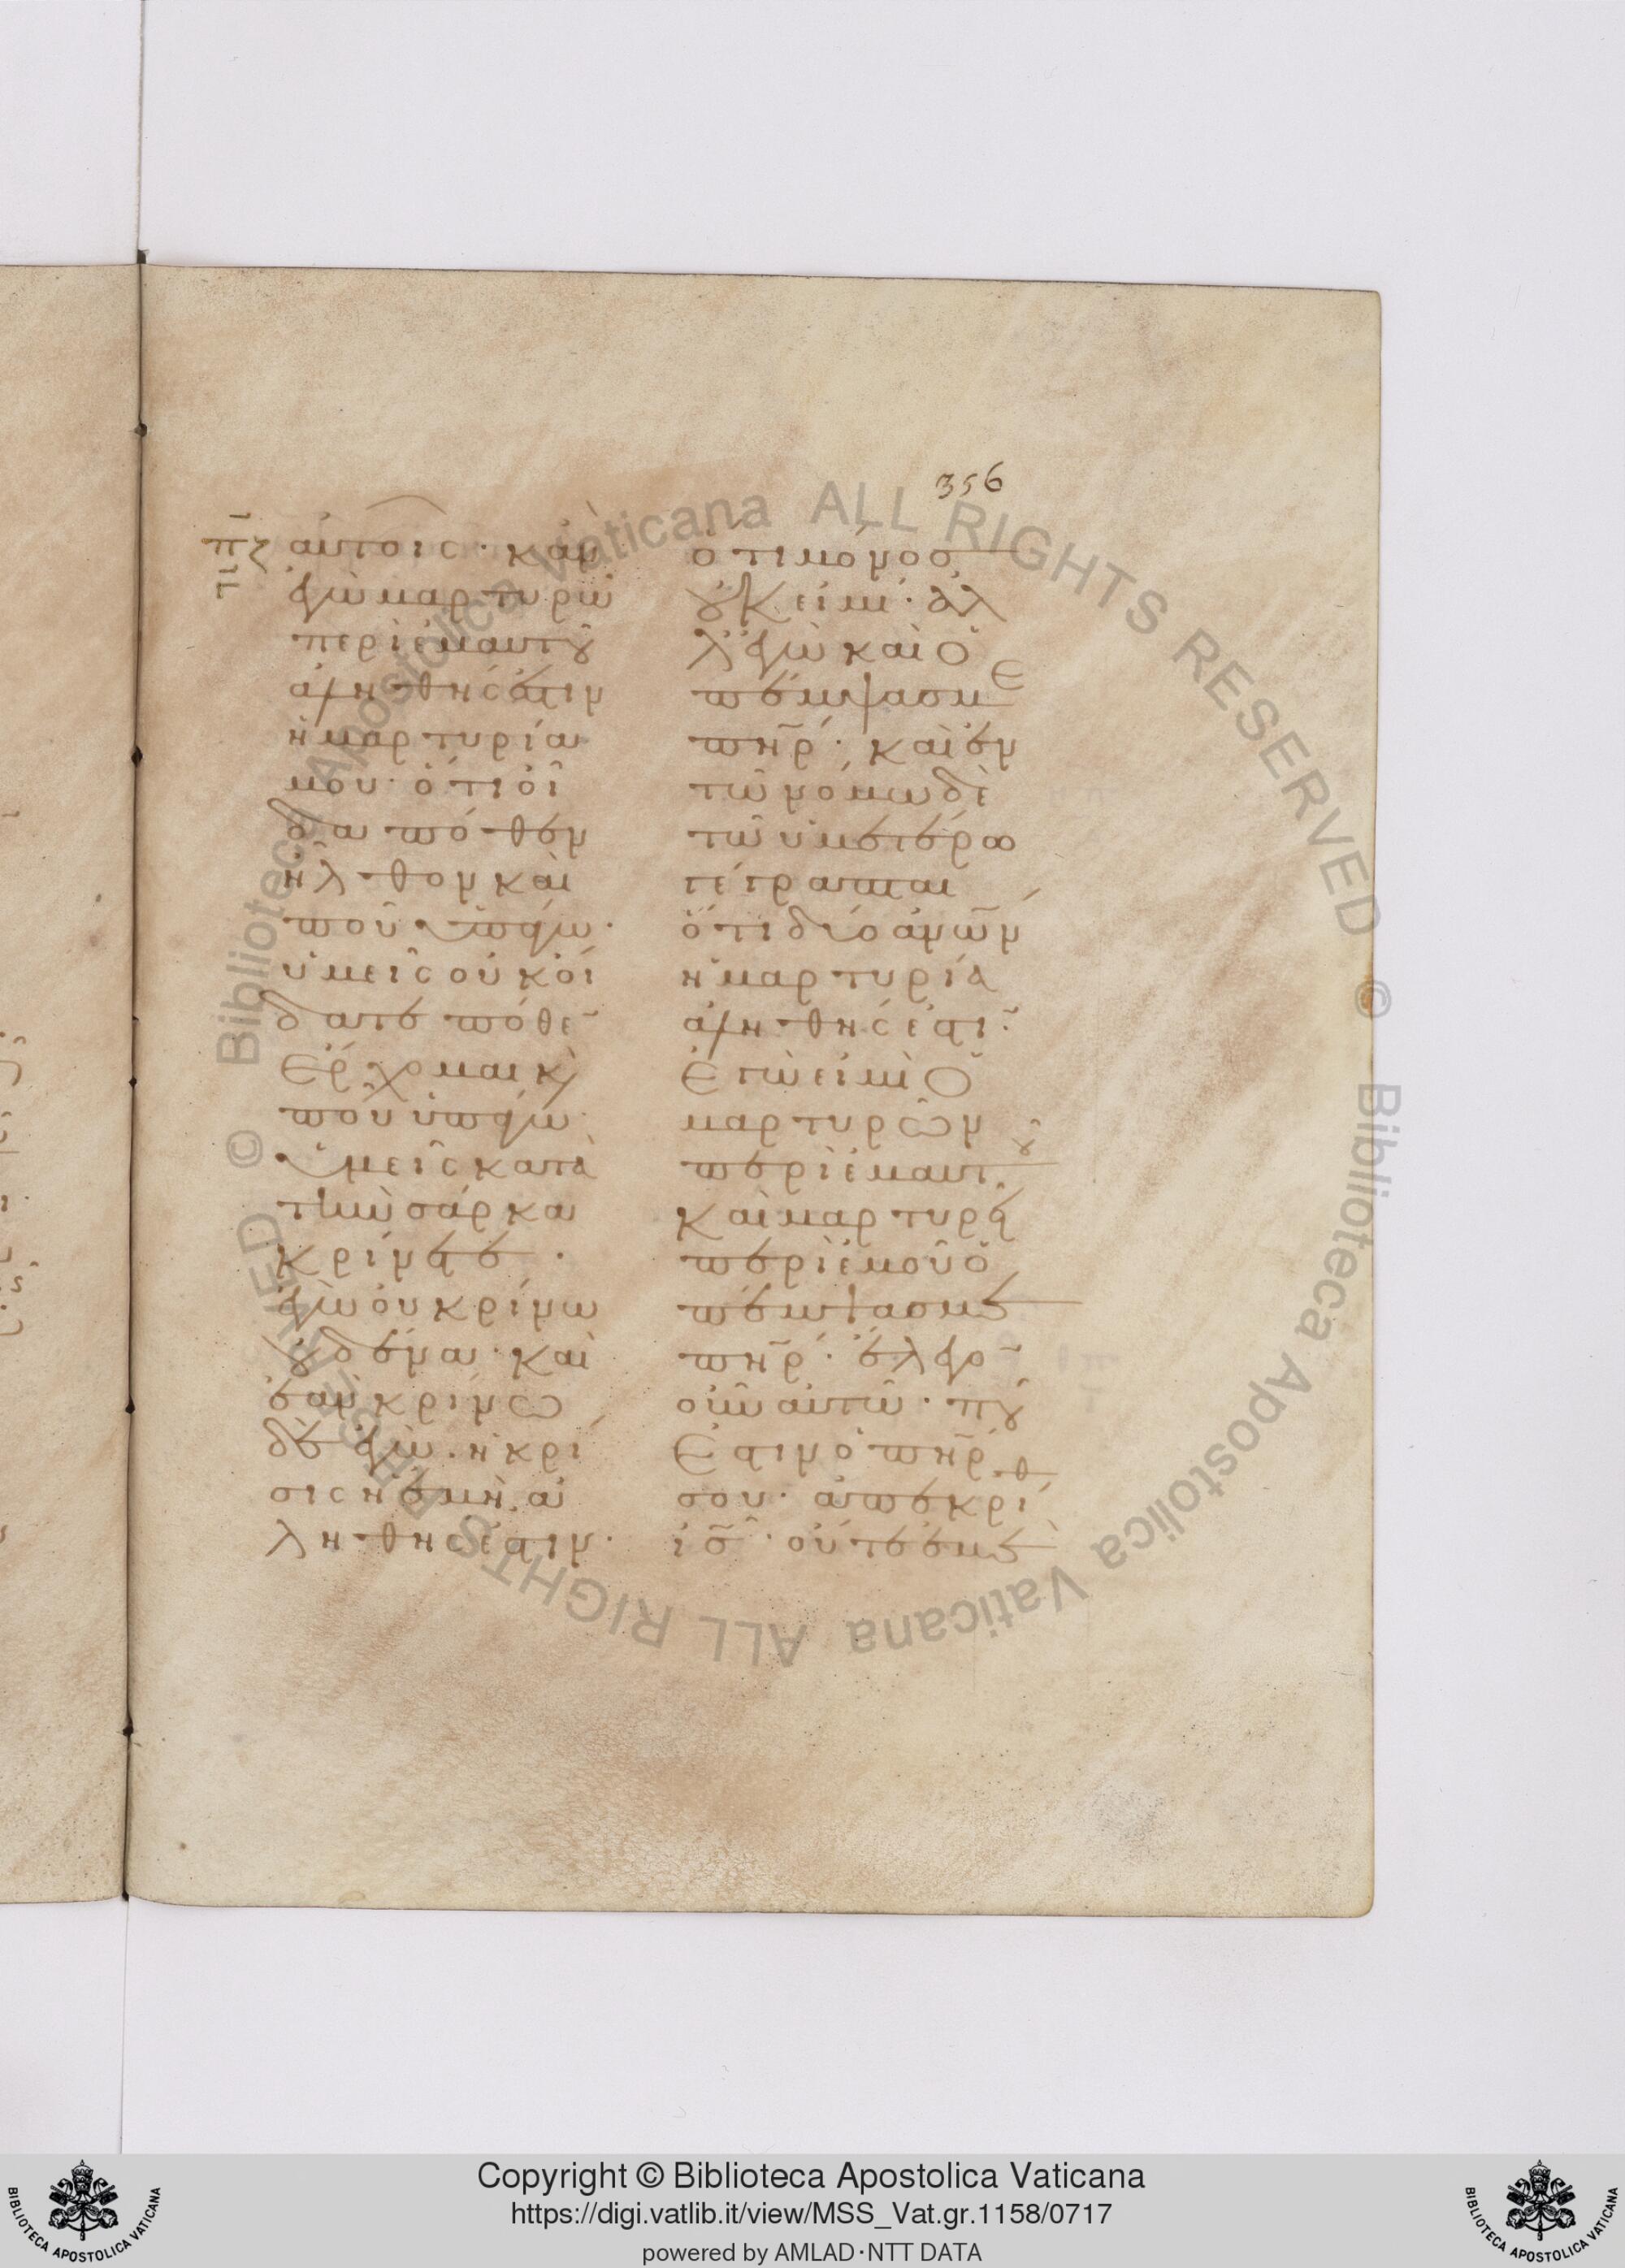 356
πζ
αὐτοῖς· κἂν
ἐγὼ μαρτυρῶ
περὶ ἐμαυτοῦ
ἀληθής ἐστιν
ἡ μαρτυρία
μου· ὅτι οἶ
δα πόθεν
ἦλθον καὶ
ποῦ ὑπάγω·
ὑμεῖς οὐκ οἴ
δατε πόθε̄
ἔρχομαι κ̀
ποῦ ὑπάγω·
ὑμεῖς κατὰ
τὴν σάρκα
κρίνετε·
ἐγὼ οὐ κρίνω
οὐδένα· καὶ
ἐὰν κρίνω
δὲ ἐγώ· ἡ κρί
σις ἡ ἐμὴ ἀ
ληθής ἐστιν·
ὅτι μόνος
οὐκ εἰμί· ἀλ
λ' ἐγὼ καὶ ὁ
πέμψας με
πη̄ρ· καὶ ἐν
τῶ νόμω δὲ
τῶ ὑμετέρω
γέγραπται
ὅτι δύο ἀνῶ̄ν
ἡ μαρτυρία
ἀληθής ἐστῑ·
ἐγώ εἰμι ὁ
μαρτυρῶν
περὶ ἐμαυτοῦ
καὶ μαρτυρεῖ
περὶ ἐμοῦ ὁ
πέμψας με
πη̄ρ· ἔλεγο̄
οὖν αὐτῶ· ποῦ
ἐστιν ὁ πη̄ρ
σου· ἀπεκρίθ
ἰ̄ς· οὔτε ἐμὲ
Copyright © Biblioteca Apostolica Vaticana
https://digi.vatlib.it/view/MSS_Vat.gr.1158/0717
powered by AMLAD·NTT DATA
BIBLIOTECA APOSTOLICA VATICANA
BIBLIOTECA APOSTOLICA VATICANA
© Biblioteca Apostolica Vaticana ALL RIGHTS RESERVED © Biblioteca Apostolica Vaticana ALL RIGHTS RESERVED